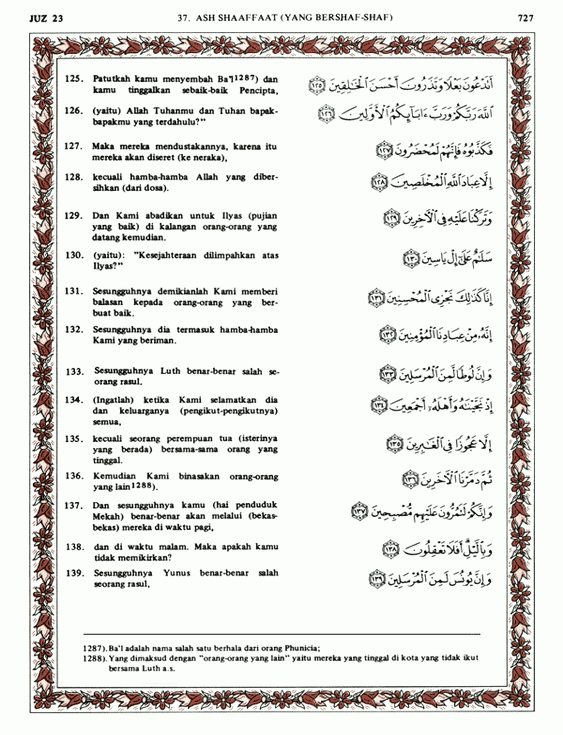 JUZ 23 37. ASH SHAAFFAAT (YANG BERSHAF-SHAF) 727
125. Patutkah kamu menyembah Ba'l1287) dan
kamu tinggalkan sebaik-baik Pencipta,
أَتَدْعُونَ بَعْلًا وَتَذَرُونَ أَحْسَنَ الْخَالِقِينَ ١٢٥
126. (yaitu) Allah Tuhanmu dan Tuhan bapak-
bapakmu yang terdahulu?"
اللَّهَ رَبَّكُمْ وَرَبَّ ءَابَآئِكُمُ الْأَوَّلِينَ ١٢٦
127. Maka mereka mendustakannya, karena itu
mereka akan diseret (ke neraka),
فَكَذَّبُوهُ فَإِنَّهُمْ لَمُحْضَرُونَ ١٢٧
128. kecuali hamba-hamba Allah yang diber-
sihkan (dari dosa).
إِلَّا عِبَادَ اللَّهِ الْمُخْلَصِينَ ١٢٨
129. Dan Kami abadikan untuk Ilyas (pujian
yang baik) di kalangan orang-orang yang
datang kemudian.
وَتَرَكْنَا عَلَيْهِ فِي الْآخِرِينَ ١٢٩
130. (yaitu): "Kesejahteraan dilimpahkan atas
Ilyas?"
سَلَٰمٌ عَلَىٰٓ إِلْ يَاسِينَ ١٣٠
131. Sesungguhnya demikianlah Kami memberi
balasan kepada orang-orang yang ber-
buat baik.
إِنَّا كَذَٰلِكَ نَجْزِي الْمُحْسِنِينَ ١٣١
132. Sesungguhnya dia termasuk hamba-hamba
Kami yang beriman.
إِنَّهُ مِنْ عِبَادِنَا الْمُؤْمِنِينَ ١٣٢
133. Sesungguhnya Luth benar-benar salah se-
orang rasul.
وَإِنَّ لُوطًا لَّمِنَ الْمُرْسَلِينَ ١٣٣
134. (Ingatlah) ketika Kami selamatkan dia
dan keluarganya (pengikut-pengikutnya)
semua,
إِذْ نَجَّيْنَٰهُ وَأَهْلَهُ أَجْمَعِينَ ١٣٤
135. kecuali seorang perempuan tua (isterinya
yang berada) bersama-sama orang yang
tinggal.
إِلَّا عَجُوزًا فِي الْغَٰبِرِينَ ١٣٥
136. Kemudian Kami binasakan orang-orang
yang lain1288).
ثُمَّ دَمَّرْنَا الْآخَرِينَ ١٣٦
137. Dan sesungguhnya kamu (hai penduduk
Mekah) benar-benar akan melalui (bekas-
bekas) mereka di waktu pagi,
وَإِنَّكُمْ لَتَمُرُّونَ عَلَيْهِم مُّصْبِحِينَ ١٣٧
138. dan di waktu malam. Maka apakah kamu
tidak memikirkan?
وَبِالَّيْلِ أَفَلَا تَعْقِلُونَ ١٣٨
139. Sesungguhnya Yunus benar-benar salah
seorang rasul,
وَإِنَّ يُونُسَ لَمِنَ الْمُرْسَلِينَ ١٣٩
1287). Ba'l adalah nama salah satu berhala dari orang Phunicia;
1288). Yang dimaksud dengan "orang-orang yang lain" yaitu mereka yang tinggal di kota yang tidak ikut
bersama Luth a.s.